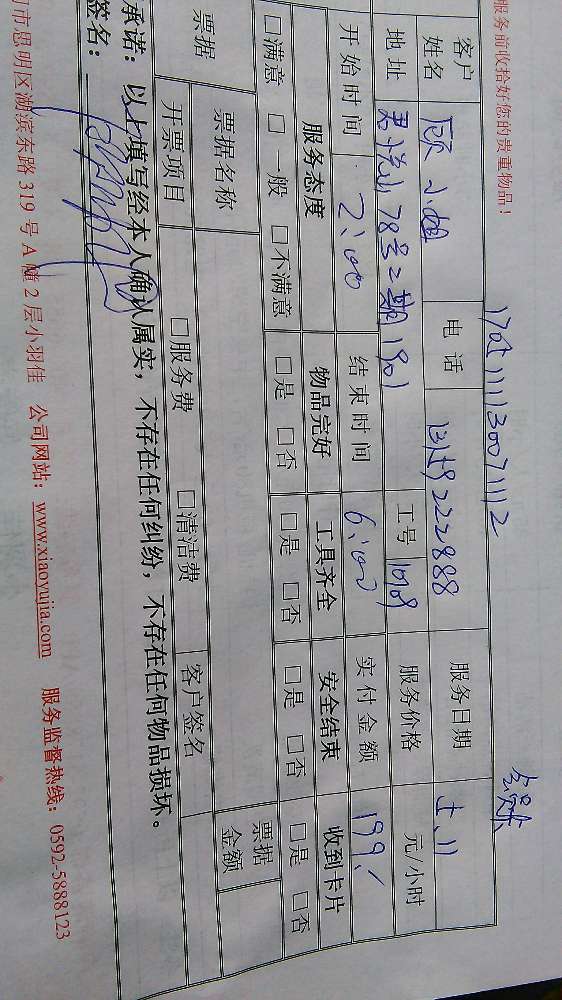 服务前收拾好您的贵重物品！
170111130071112
客户姓名 顾小姐 电话 服务日期 十.11
地址 君悦山78号二期1901 工号 1019 服务价格 元/小时
开始时间 2:00 结束时间 6:00 实付金额 199
服务态度 物品完好 工具齐全 安全结束 收到卡片
□满意 □一般 □不满意 □是 □否 □是 □否 □是 □否 □是 □否
票据 票据名称 票据金额
开票项目 □服务费 □清洁费 客户签名
承诺：以上填写经本人确认属实，不存在任何纠纷，不存在任何物品损坏。
签名：
门市思明区湖滨东路 319 号 A 幢 2 层小羽佳 公司网站：www.xiaoyujia.com 服务监督热线：0592-5888123